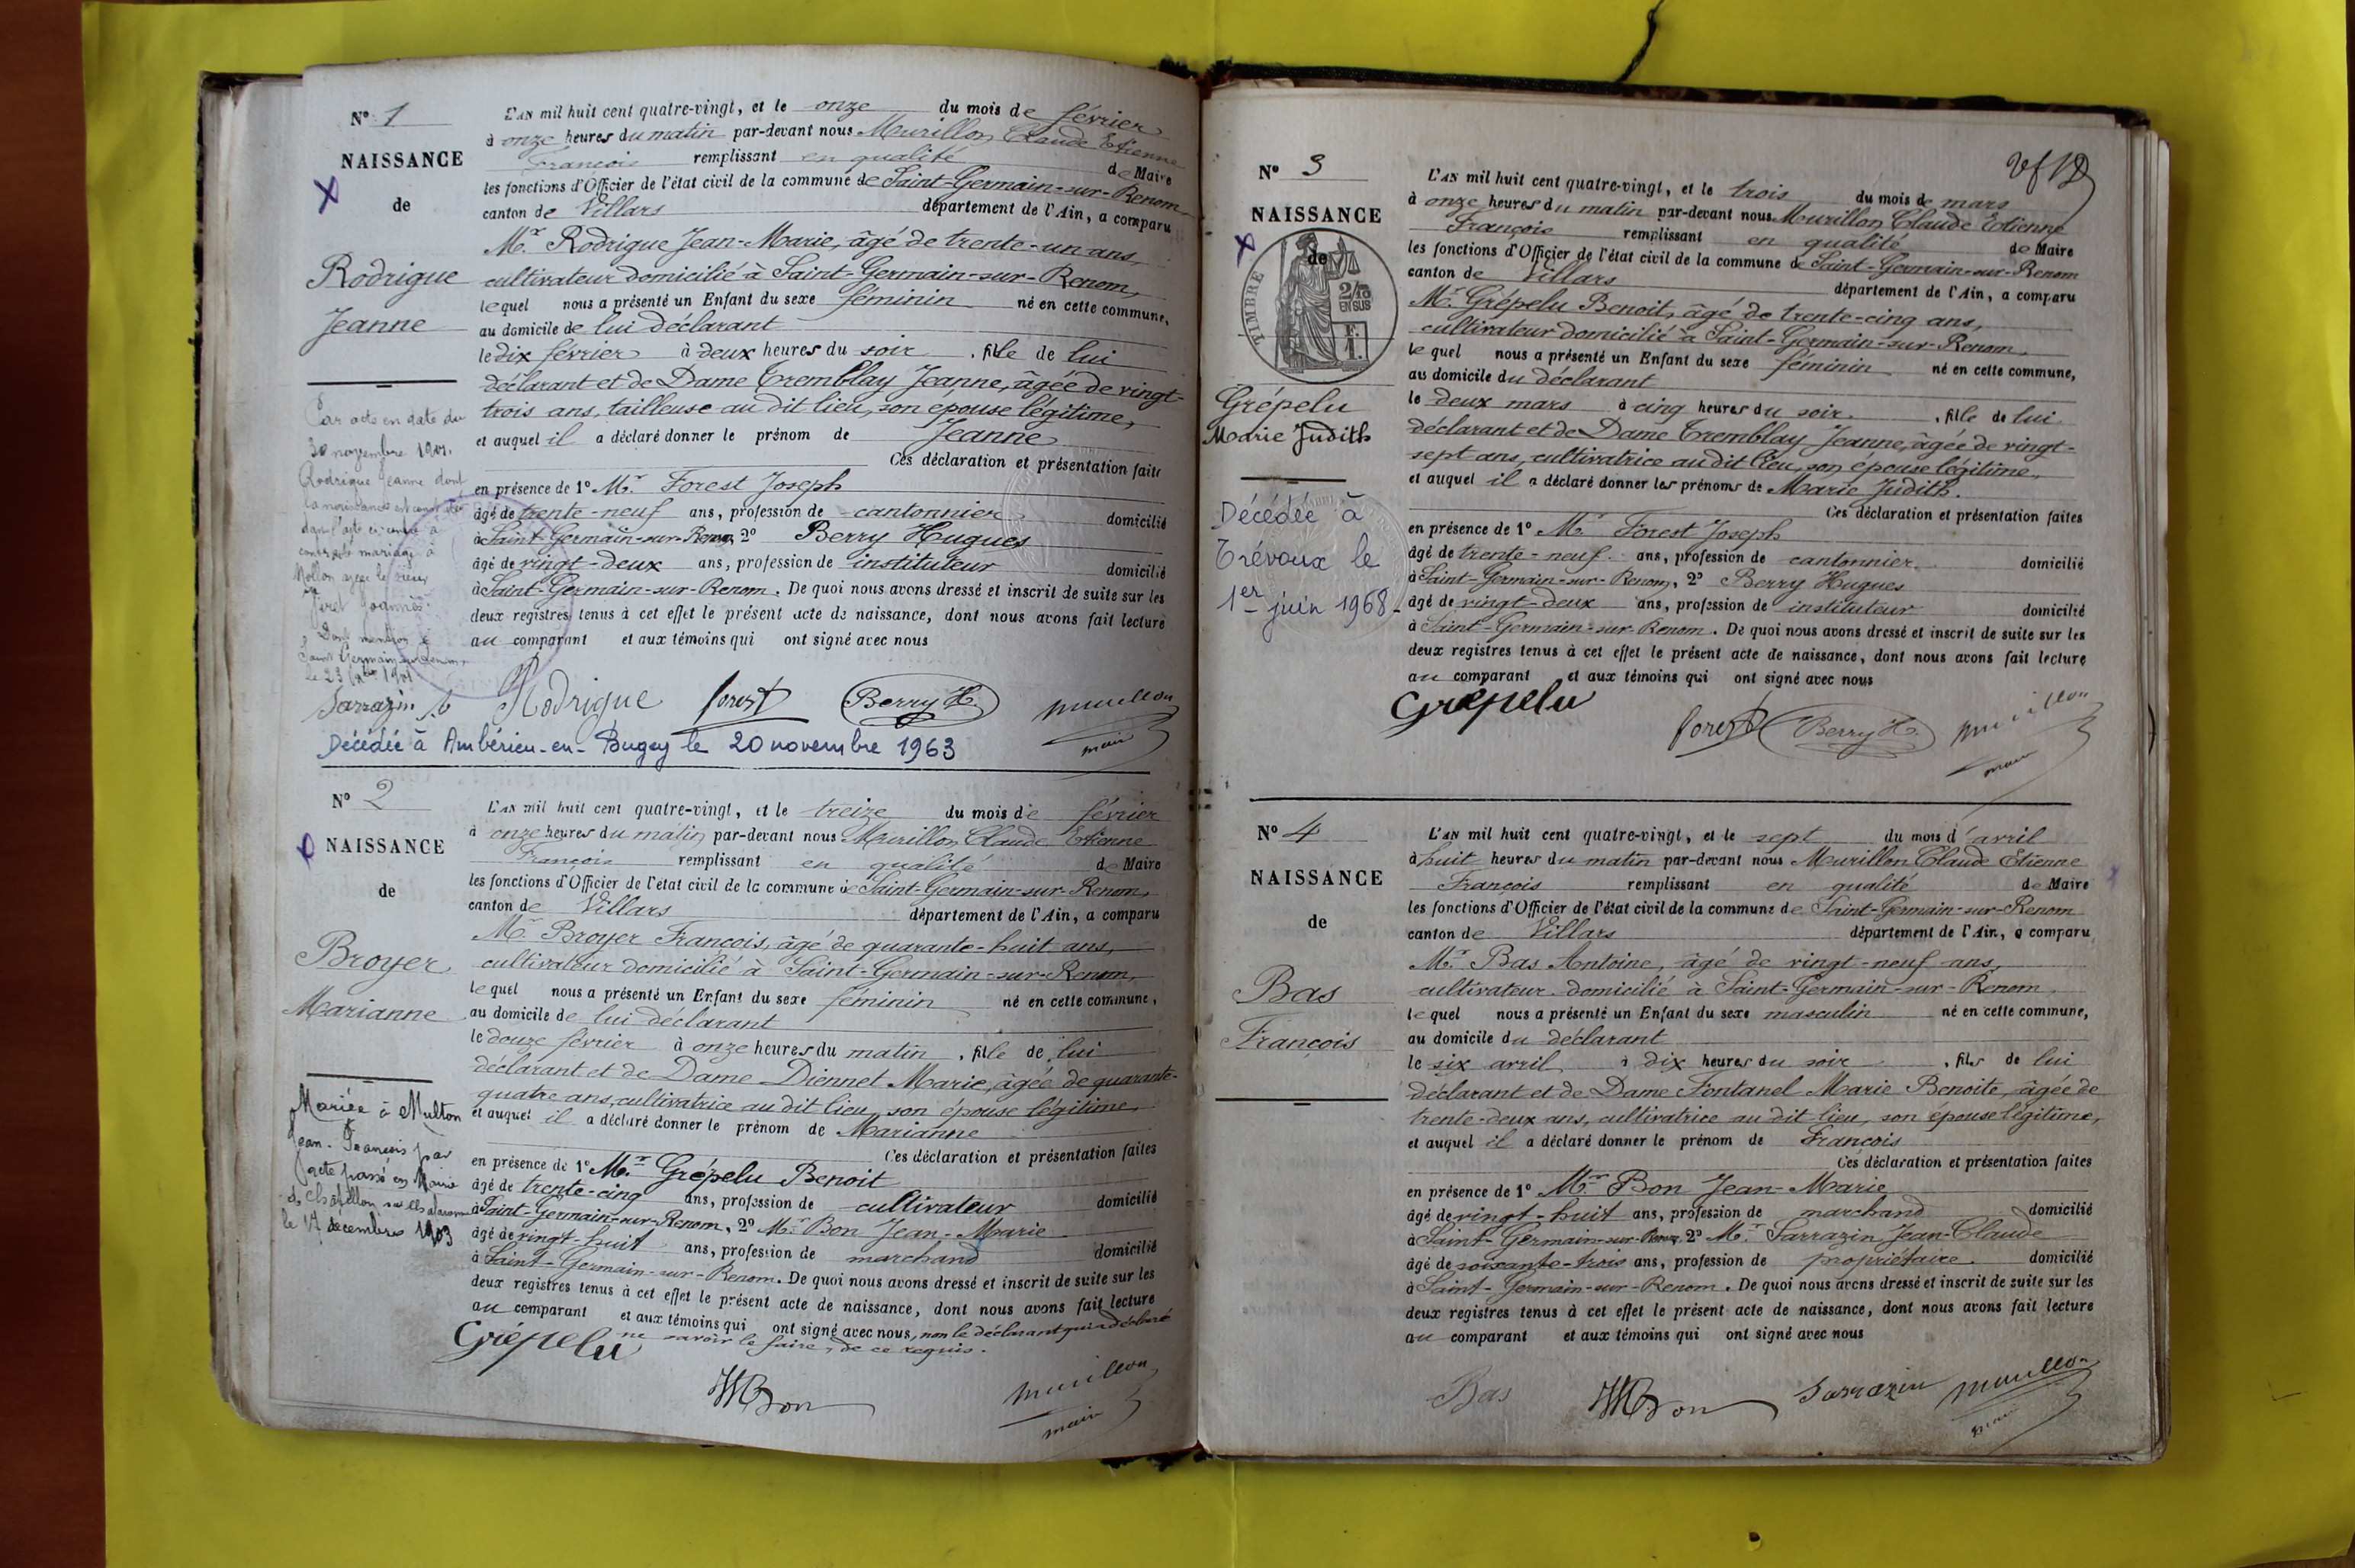 N° 1
NAISSANCE
de
Rodrigue
Jeanne
L'AN mil huit cent quatre-vingt, et le onze du mois de février
à onze heures du matin par-devant nous Murillon Claude Etienne
François remplissant en qualité de Maire
les fonctions d'Officier de l'état civil de la commune de Saint-Germain-sur-Renom
canton de Villars département de l'Ain, a comparu
Mr. Rodrigue Jean-Marie, âgé de trente-un ans,
cultivateur domicilié à Saint-Germain-sur-Renom,
lequel nous a présenté un Enfant du sexe féminin né en cette commune,
au domicile de lui déclarant
le dix février à deux heures du soir, fille de lui
déclarant et de Dame Tremblay Jeanne, âgée de vingt-
trois ans, tailleuse au dit lieu, son épouse légitime,
et auquel il a déclaré donner le prénom de Jeanne
Ces déclaration et présentation faites
en présence de 1° Mr. Forest Joseph
âgé de trente-neuf ans, profession de cantonnier domicilié
à Saint-Germain-sur-Renom, 2° Berry Hugues
âgé de vingt-deux ans, profession de instituteur domicilié
à Saint-Germain-sur-Renom. De quoi nous avons dressé et inscrit de suite sur les
deux registres tenus à cet effet le présent acte de naissance, dont nous avons fait lecture
au comparant et aux témoins qui ont signé avec nous
Par acte en date du
30 novembre 1901.
Rodrigue Jeanne dont
la naissance est constatée
dans l'acte ci-contre a
contracté mariage à
Mollon avec le sieur
Joannès.
Dont mention à
Saint Germain sur Renom,
le 23 1901
Sarrazin
Rodrigue Forest Berry H. Murillon
maire
Décédée à Ambérieu-en-Bugey le 20 novembre 1963
N° 2
NAISSANCE
de
Broyer
Marianne
L'AN mil huit cent quatre-vingt, et le treize du mois de février
à onze heures du matin par-devant nous Murillon Claude Etienne
François remplissant en qualité de Maire
les fonctions d'Officier de l'état civil de la commune de Saint-Germain-sur-Renom,
canton de Villars département de l'Ain, a comparu
Mr. Broyer François, âgé de quarante-huit ans,
cultivateur domicilié à Saint-Germain-sur-Renom,
lequel nous a présenté un Enfant du sexe féminin né en cette commune,
au domicile de lui déclarant
le douze février à onze heures du matin, fille de lui
déclarant et de Dame Diennet Marie, âgée de quarante-
quatre ans, cultivatrice au dit lieu, son épouse légitime,
et auquel il a déclaré donner le prénom de Marianne
Ces déclaration et présentation faites
en présence de 1° Mr. Grépelu Benoit
âgé de trente-cinq ans, profession de cultivateur domicilié
à Saint-Germain-sur-Renom, 2° Mr. Bon Jean-Marie
âgé de vingt-huit ans, profession de marchand domicilié
à Saint-Germain-sur-Renom. De quoi nous avons dressé et inscrit de suite sur les
deux registres tenus à cet effet le présent acte de naissance, dont nous avons fait lecture
au comparant et aux témoins qui ont signé avec nous, non le déclarant qui a déclaré
ne savoir le faire, de ce requis.
Mariée à Multon
Jean-François par
acte passé en Mairie
de Chatillon sur Chalaronne
le 17 décembre 1903
Grépelu
Bon
Murillon
maire
N° 3
NAISSANCE
de
TIMBRE
2/10
EN SUS
Grépelu
Marie Judith
Décédée à
Trévoux le
1er juin 1968-
L'AN mil huit cent quatre-vingt, et le trois du mois de mars
à onze heures du matin par-devant nous Murillon Claude Etienne
François remplissant en qualité de Maire
les fonctions d'Officier de l'état civil de la commune de Saint-Germain-sur-Renom
canton de Villars département de l'Ain, a comparu
Mr. Grépelu Benoit, âgé de trente-cinq ans,
cultivateur domicilié à Saint-Germain-sur-Renom,
lequel nous a présenté un Enfant du sexe féminin né en cette commune,
au domicile du déclarant
le deux mars à cinq heures du soir, fille de lui
déclarant et de Dame Tremblay Jeanne, âgée de vingt-
sept ans, cultivatrice au dit lieu, son épouse légitime,
et auquel il a déclaré donner les prénoms de Marie Judith.
Ces déclaration et présentation faites
en présence de 1° Mr Forest Joseph
âgé de trente-neuf ans, profession de cantonnier domicilié
à Saint-Germain-sur-Renom, 2° Berry Hugues
âgé de vingt-deux ans, profession de instituteur domicilié
à Saint-Germain-sur-Renom. De quoi nous avons dressé et inscrit de suite sur les
deux registres tenus à cet effet le présent acte de naissance, dont nous avons fait lecture
au comparant et aux témoins qui ont signé avec nous
Grepelu
Forest Berry H. Murillon
maire
N° 4
NAISSANCE
de
Bas
François
L'AN mil huit cent quatre-vingt, et le sept du mois d'avril
à huit heures du matin par-devant nous Murillon Claude Etienne
François remplissant en qualité de Maire
les fonctions d'Officier de l'état civil de la commune de Saint-Germain-sur-Renom
canton de Villars département de l'Ain, a comparu
Mr. Bas Antoine, âgé de vingt-neuf ans,
cultivateur domicilié à Saint-Germain-sur-Renom.
lequel nous a présenté un Enfant du sexe masculin né en cette commune,
au domicile du déclarant
le six avril à dix heures du soir, fils de lui
déclarant et de Dame Fontanel Marie Benoite, âgée de
trente-deux ans, cultivatrice au dit lieu, son épouse légitime,
et auquel il a déclaré donner le prénom de François
Ces déclaration et présentation faites
en présence de 1° Mr. Bon Jean-Marie
âgé de vingt-huit ans, profession de marchand domicilié
à Saint-Germain-sur-Renom, 2° Mr. Sarrazin Jean-Claude
âgé de soixante-trois ans, profession de propriétaire. domicilié
à Saint-Germain-sur-Renom. De quoi nous avons dressé et inscrit de suite sur les
deux registres tenus à cet effet le présent acte de naissance, dont nous avons fait lecture
au comparant et aux témoins qui ont signé avec nous
Bas Bon Sarrazin Murillon
maire